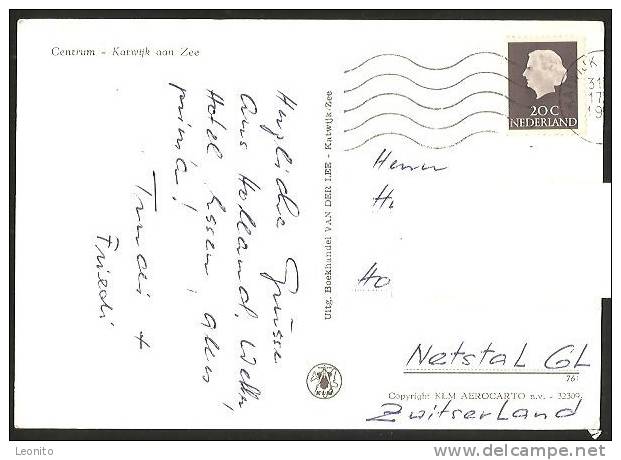 Centrum - Katwijk aan Zee
Herzliche Grüsse
Aus Holland. Wetter,
Hotel, Essen, alles
prima!
Trudi +
Friedi
Uitg. Boekhandel VAN DER LEE - Katwijk/Zee
KLM
20 C
NEDERLAND
31
17
19
Herrn
Hi
Ho
Netstal GL
761
Copyright KLM AEROCARTO n.v. - 32309
Zwitserland
Leonito
www.delcampe.net